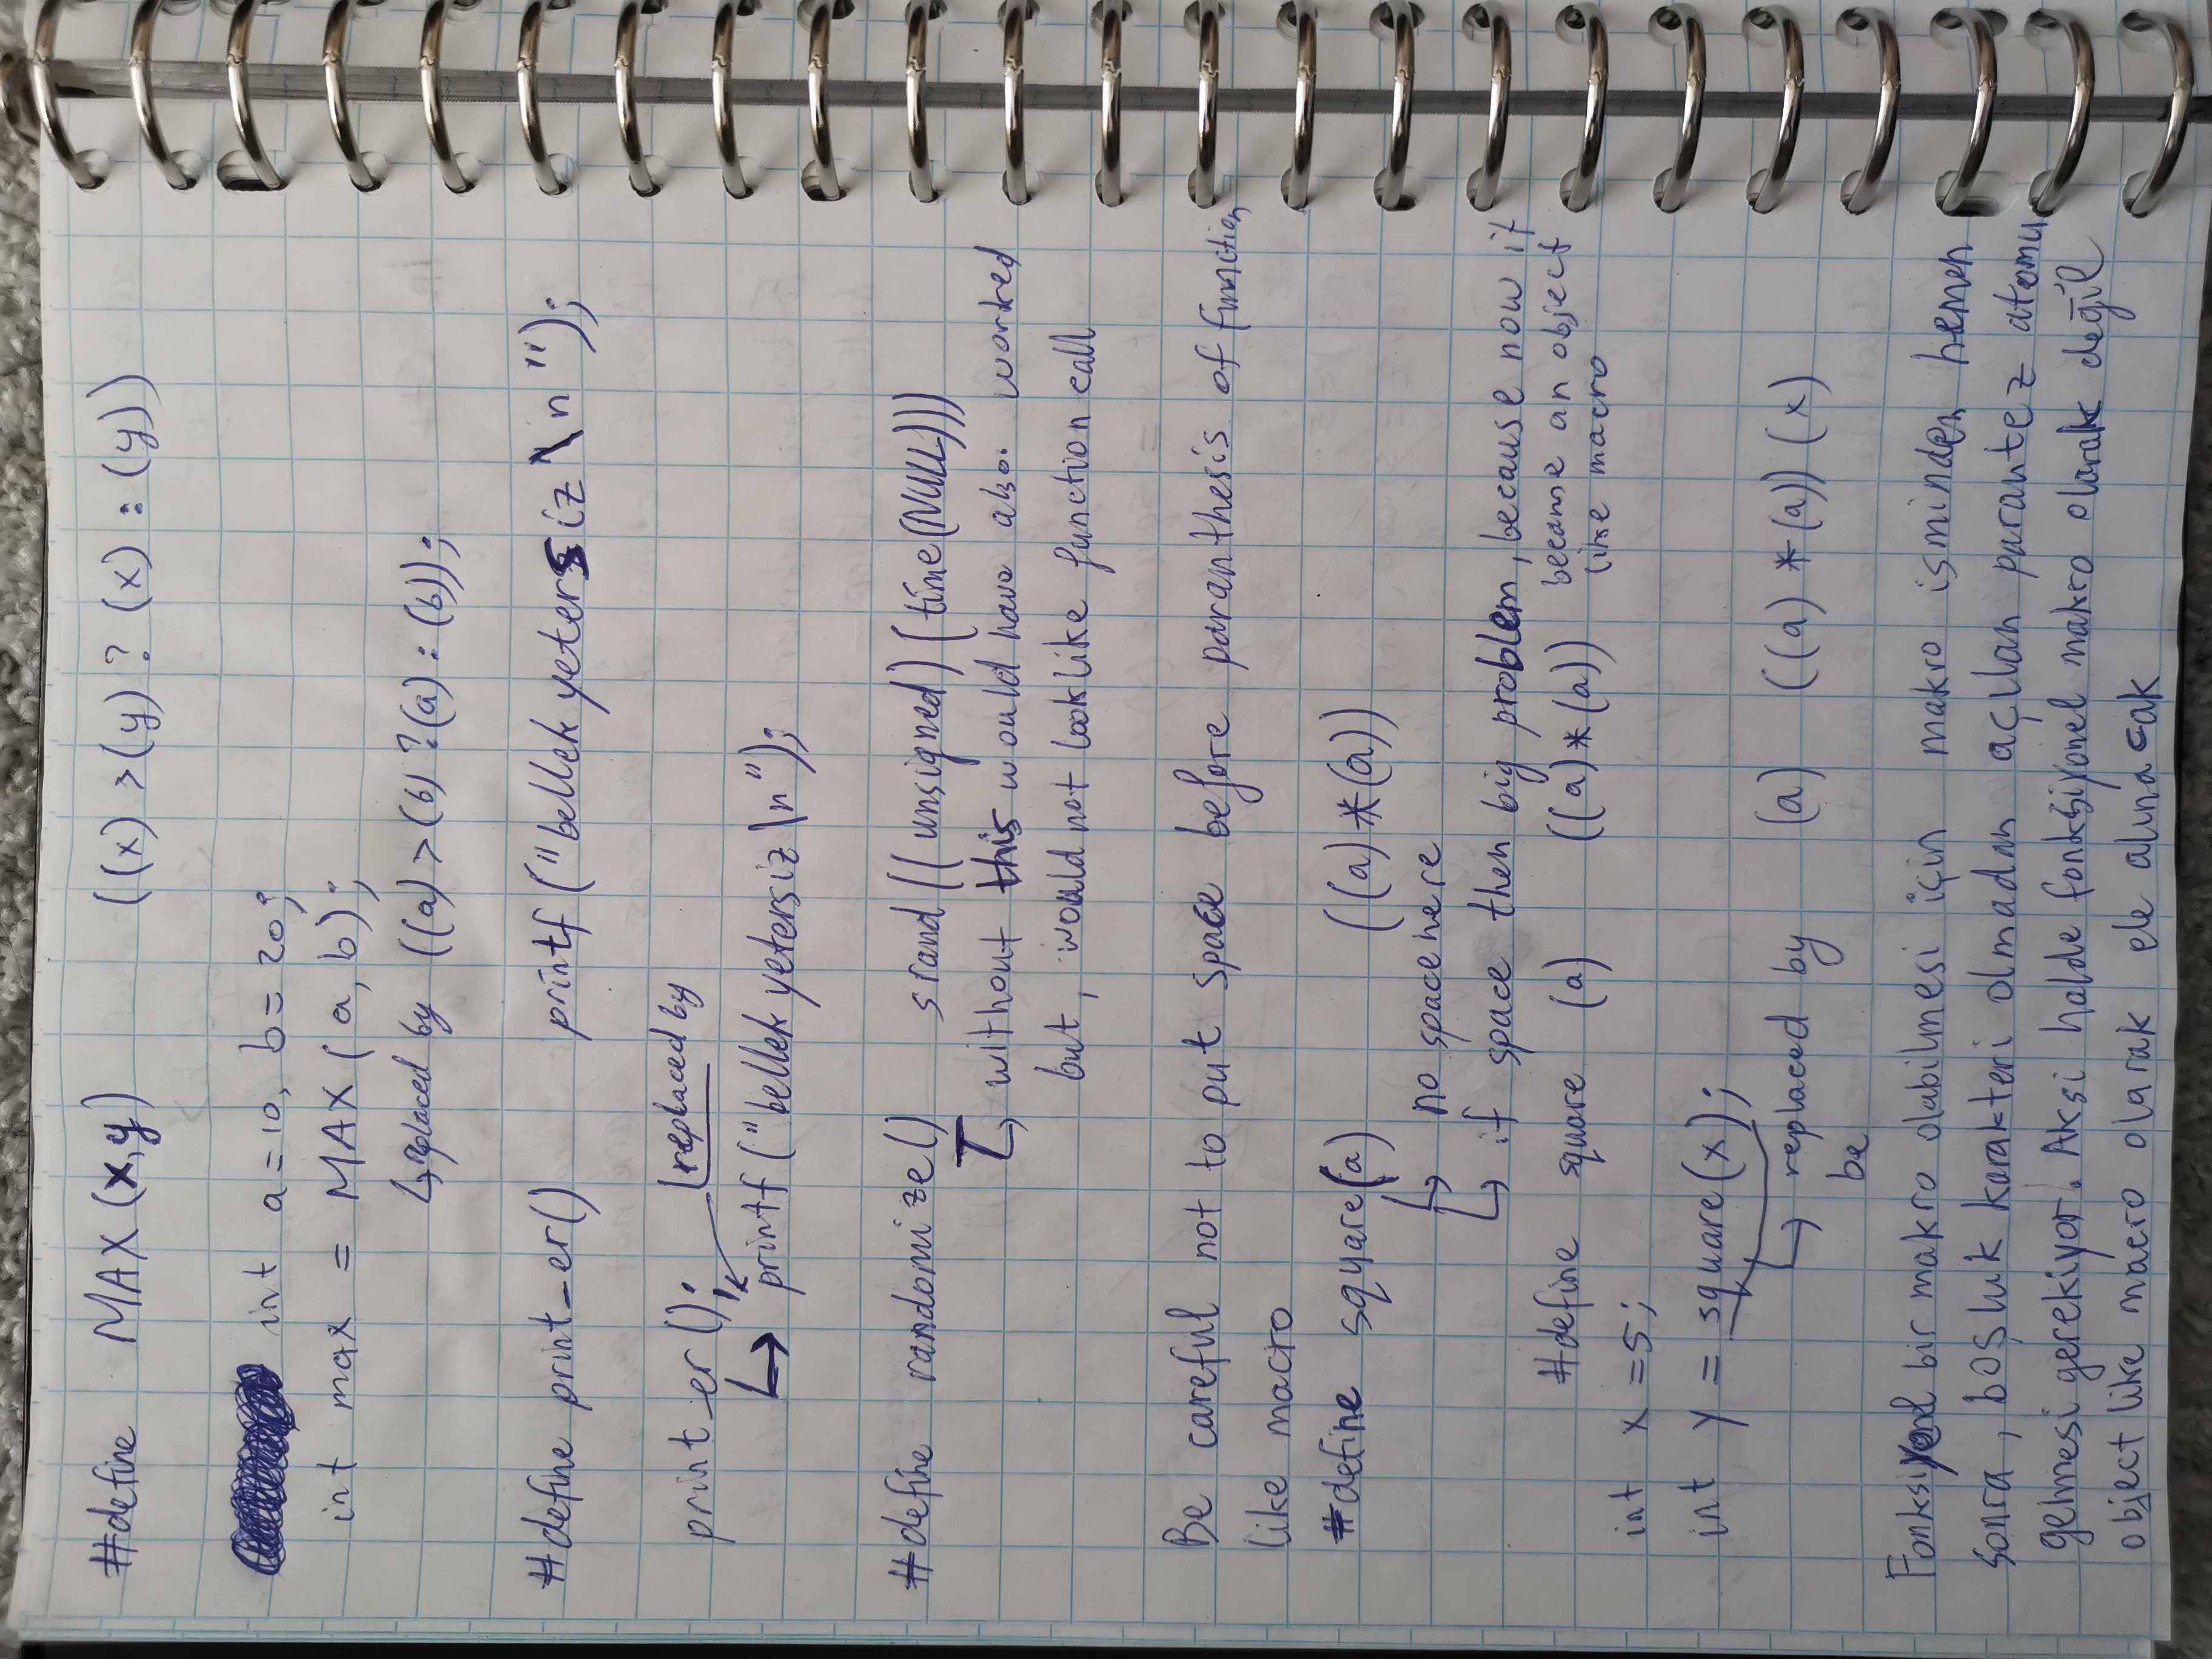 #define MAX(x,y) ((x) >(y) ? (x) : (y))
int a=10, b=20;
int max = MAX(a, b);
replaced by ((a) > (b) ?(a) : (b));
#define print_er() printf("bellek yetersiz\n");
print_er();
replaced by
printf("bellek yetersiz\n");
#define randomize() srand((unsigned)(time(NULL)))
without this would have also worked
but, would not look like function call
Be careful not to put space before paranthesis of function
like macro
#define square(a) ((a)*(a))
no space here
if space then big problem, because now it
became an object
like macro
#define square (a) ((a)*(a))
int x =5;
int y = square(x);
replaced by (a) ((a) *(a)) (x)
be
Fonksiyonel bir makro olabilmesi için makro isminden hemen
sonra, boşluk karakteri olmadan açılan parantez atomu
gelmesi gerekiyor. Aksi halde fonksiyonel makro olarak değil
object like macro olarak ele alınacak